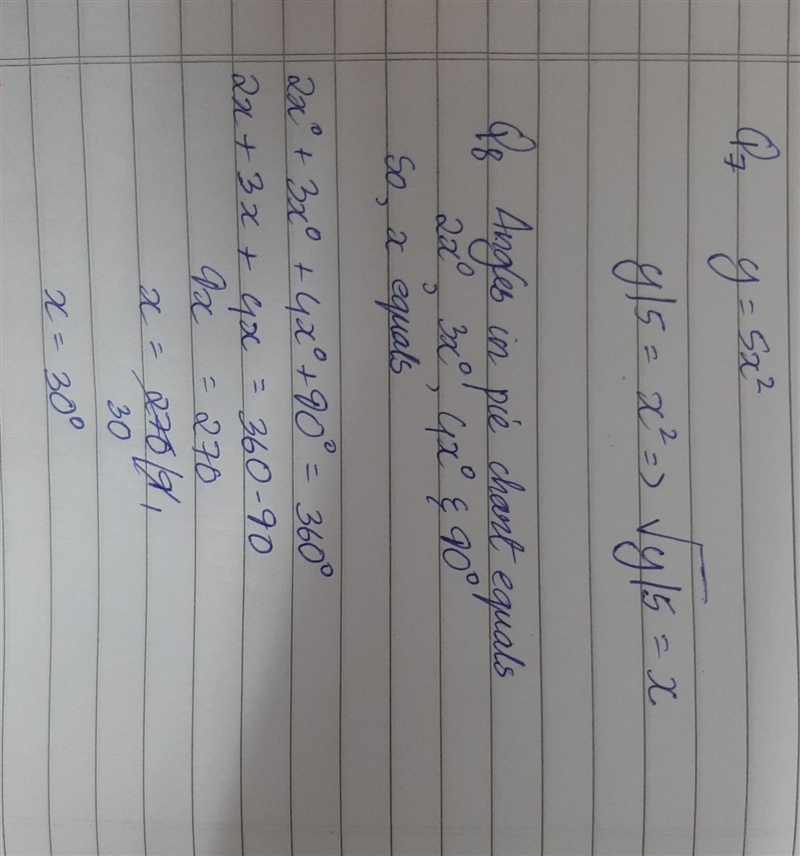 Q7 y = 5x²
y/5 = x² => √y/5 = x
Q8 Angles in pie chart equals
2x°, 3x°, 4x° & 90°
So, x equals
2x° + 3x° + 4x° + 90° = 360°
2x + 3x + 4x = 360 - 90
9x = 270
x = 270/9,
30
x = 30°